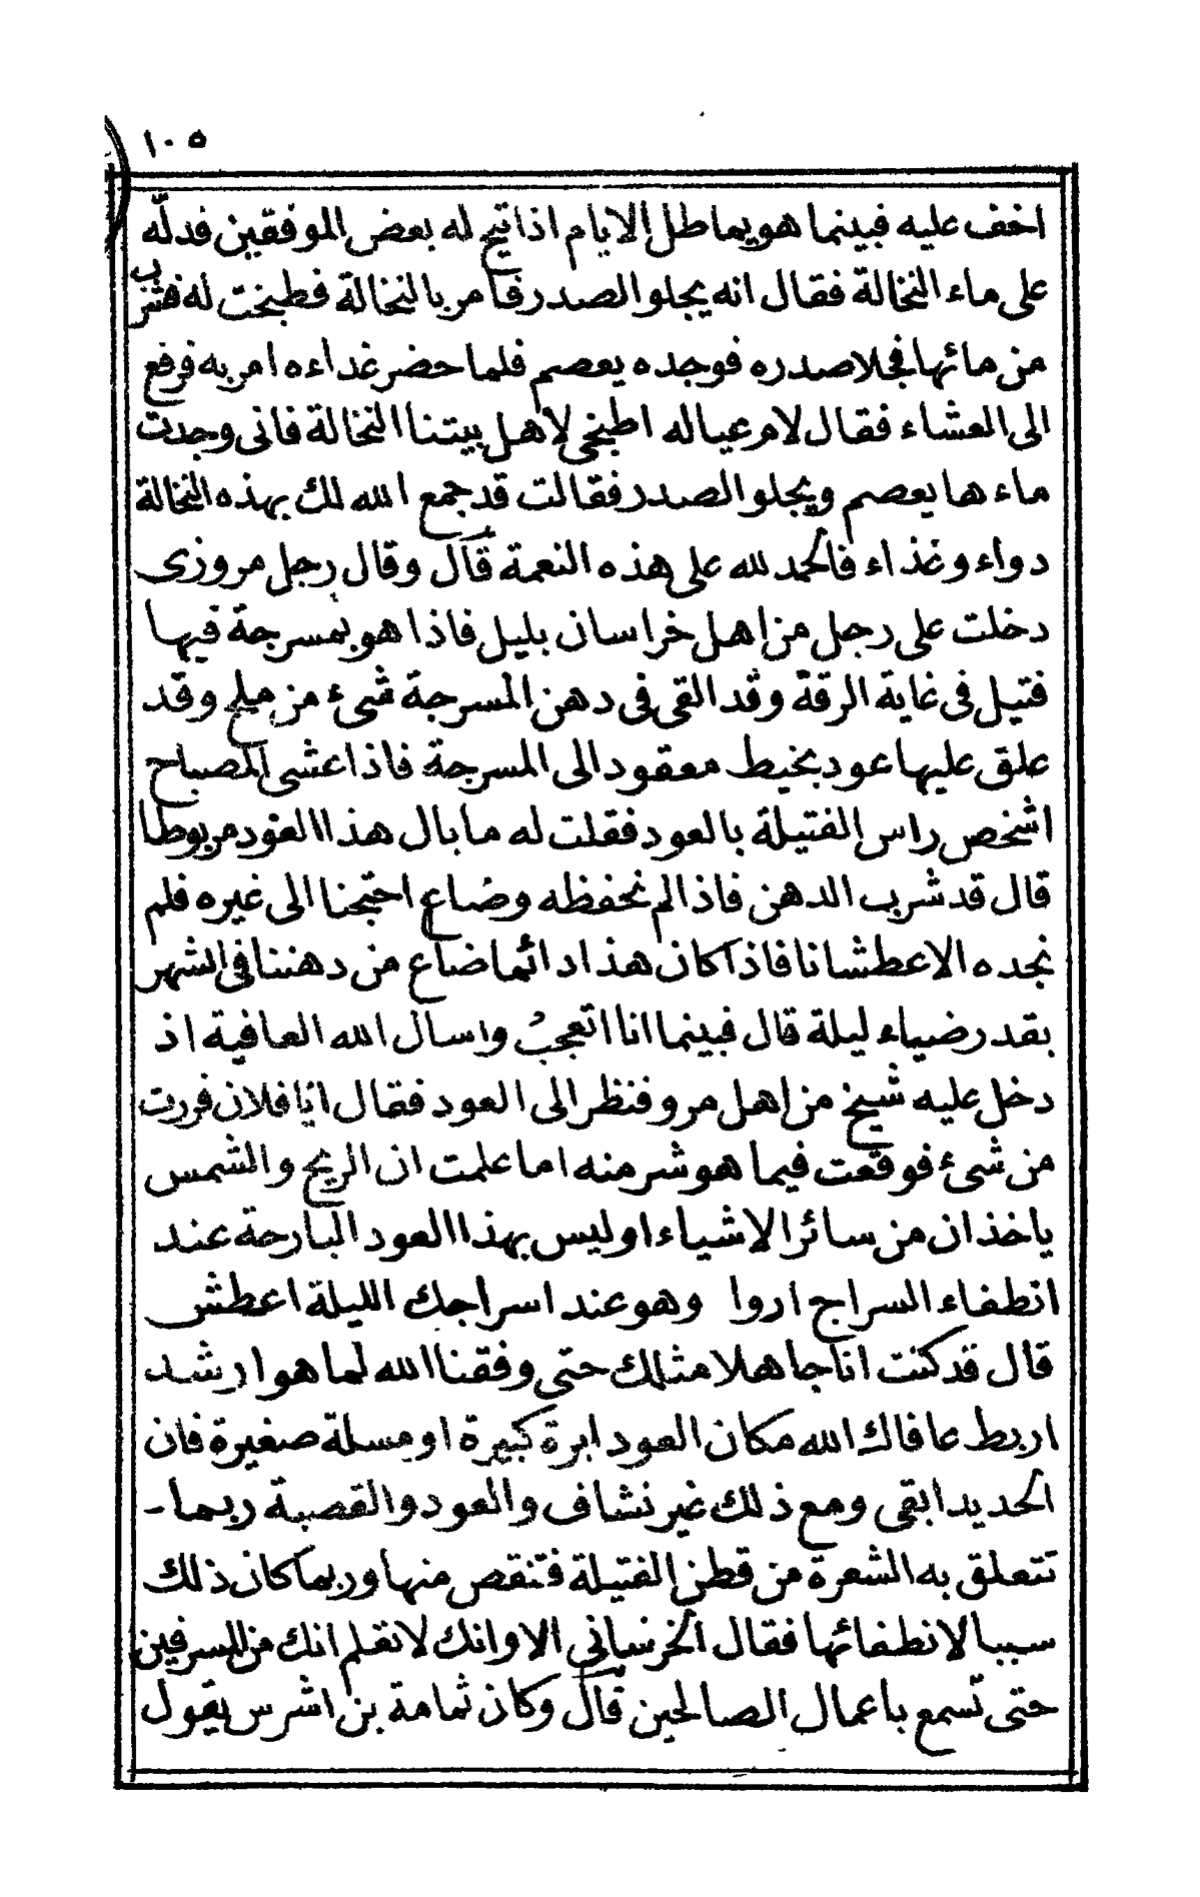 ١٠٥
اخف عليه فبينما هو يماطل الايام اذ اتيح له بعض الموفقين فدلّه
على ماء النخالة فقال انه يجلو الصدر فأمر بالنخالة فطبخت له فشرب
من مائها فجلا صدره فوجده يعصم فلما حضر غداءه امر به فرفع
الى العشاء فقال لام عياله اطبخي لاهل بيتنا النخالة فانى وجدت
ماءها يعصم ويجلو الصدر فقالت قد جمع الله لك بهذه النخالة
دواء وغذاء فالحمد لله على هذه النعمة قال وقال رجل مروزى
دخلت على رجل من اهل خراسان بليل فاذا هو بمسرجة فيها
فتيل فى غاية الرقة وقد القى فى دهن المسرجة شىء من ملح وقد
علق عليها عود بخيط معقود الى المسرجة فاذا عشى المصباح
اشخص راس الفتيلة بالعود فقلت له ما بال هذا العود مربوطا
قال قد شرب الدهن فاذا لم نحفظه وضاع احتجنا الى غيره فلم
نجده الا عطشانا فاذا كان هذا دائما ضاع من دهننا فى الشهر
بقدر ضياء ليلة قال فبينما انا اتعجب واسأل الله العافية اذ
دخل عليه شيخ من اهل مرو فنظر الى العود فقال ايا فلان فررت
من شىء فوقعت فيما هو شر منه اما علمت ان الريح والشمس
ياخذان من سائر الاشياء اوليس بهذا العود البارحة عند
انطفاء السراج اروا وهو عند اسراجك الليلة اعطش
قال قد كنت انا جاهلا مثلك حتى وفقنا الله لما هو ارشد
اربط عافاك الله مكان العود ابرة كبيرة او مسلة صغيرة فان
الحديد ابقى ومع ذلك غير نشاف والعود والقصبة ربما -
تتعلق به الشعرة من قطن الفتيلة فتنقص منها وربما كان ذلك
سببا لانطفائها فقال الخرساني الا وانك لا تعلم انك من المسرفين
حتى تسمع باعمال الصالحين قال وكان ثمامة بن اشرس يقول